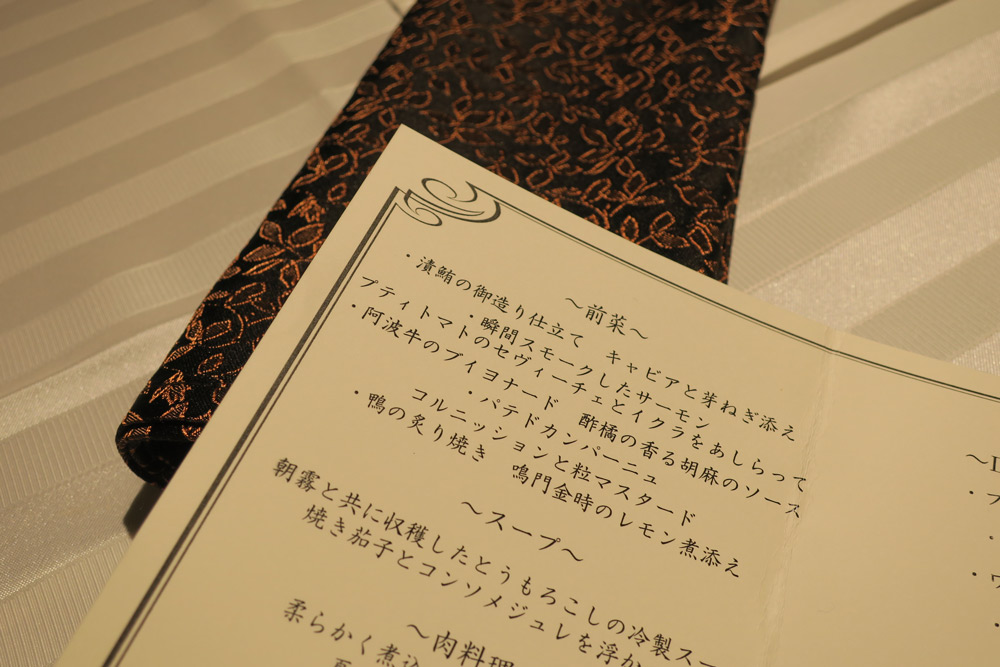 ～前菜～
・漬鮪の御造り仕立て　キャビアと芽ねぎ添え
・瞬間スモークしたサーモン
プティトマトのセヴィーチェとイクラをあしらって
・阿波牛のブイヨナード　酢橘の香る胡麻のソース
・パテドカンパーニュ
コルニッションと粒マスタード
・鴨の炙り焼き　鳴門金時のレモン煮添え
～スープ～
朝霧と共に収穫したとうもろこしの冷製スー
焼き茄子とコンソメジュレを浮か
～肉料理
柔らかく煮込